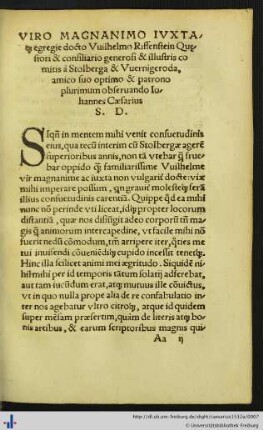 VIRO MAGNANIMO IVXTA-
q̃ȝ egregie docto Vuilhelmo Riffenstein Quę
stori & consiliario generosi & illustris co
mitis à Stolberga & Vuernigeroda,
amico suo optimo & patrono
plurimum obseruando Io-
hannes Cæsarius
S. D.
SIqñ in mentem mihi venit consuetudinis
eius, qua tecũ interim cũ Stolbergæ agerẽ
superioribus annis, non tã vtebar q̃ frue
bar oppido q̃ familiarissime Vuilhelme
vir magnanime ac iuxta non vulgarit̃ docte: vix
mihi imperare possum, qn grauit̃ molesteq̃ȝ ferã
illius consuetudinis carentiã. Quippe qđ ea mihi
nunc nõ perinde vti liceat, idq̃ȝ propter locorum
distantiã, quæ nos disiũgit adeo corporũ tm̃ ma
gis q̃ animorum intercapedine, vt facile mihi nõ
fuerit nedũ cõmodum, tm̃ arripere iter, q̃ties me
tui inuisendi cõueniẽdiq̃ȝ cupido incessit tenetq̃ȝ.
Hinc illa scilicet animi mei ægritudo. Siquidẽ ni-
hil mihi per id temporis tãtum solatij adferebat,
aut tam iucũdum erat, atq̃ȝ mutuus ille cõuictus,
vt in quo nulla prope alia de re confabulatio in-
ter nos agebatur vltro citroq̃ȝ, atque id quidem
super mẽsam præsertim, quàm de literis atq̃ȝ bo
nis artibus, & earum scriptoribus magnis qui-
Aa ij
http://dl.ub.uni-freiburg.de/diglit/caesarius1532a/0007
© Universitätsbibliothek Freiburg